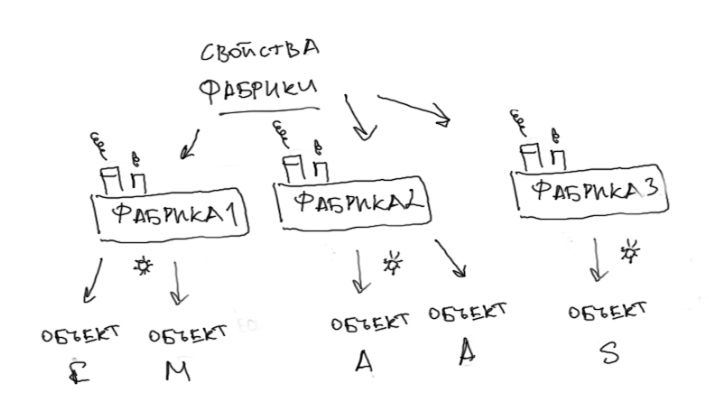 СВОЙСТВА
ФАБРИКИ
ФАБРИКА1 ФАБРИКА2 ФАБРИКА3
ОБЪЕКТ ОБЪЕКТ ОБЪЕКТ ОБЪЕКТ ОБЪЕКТ
M A A S